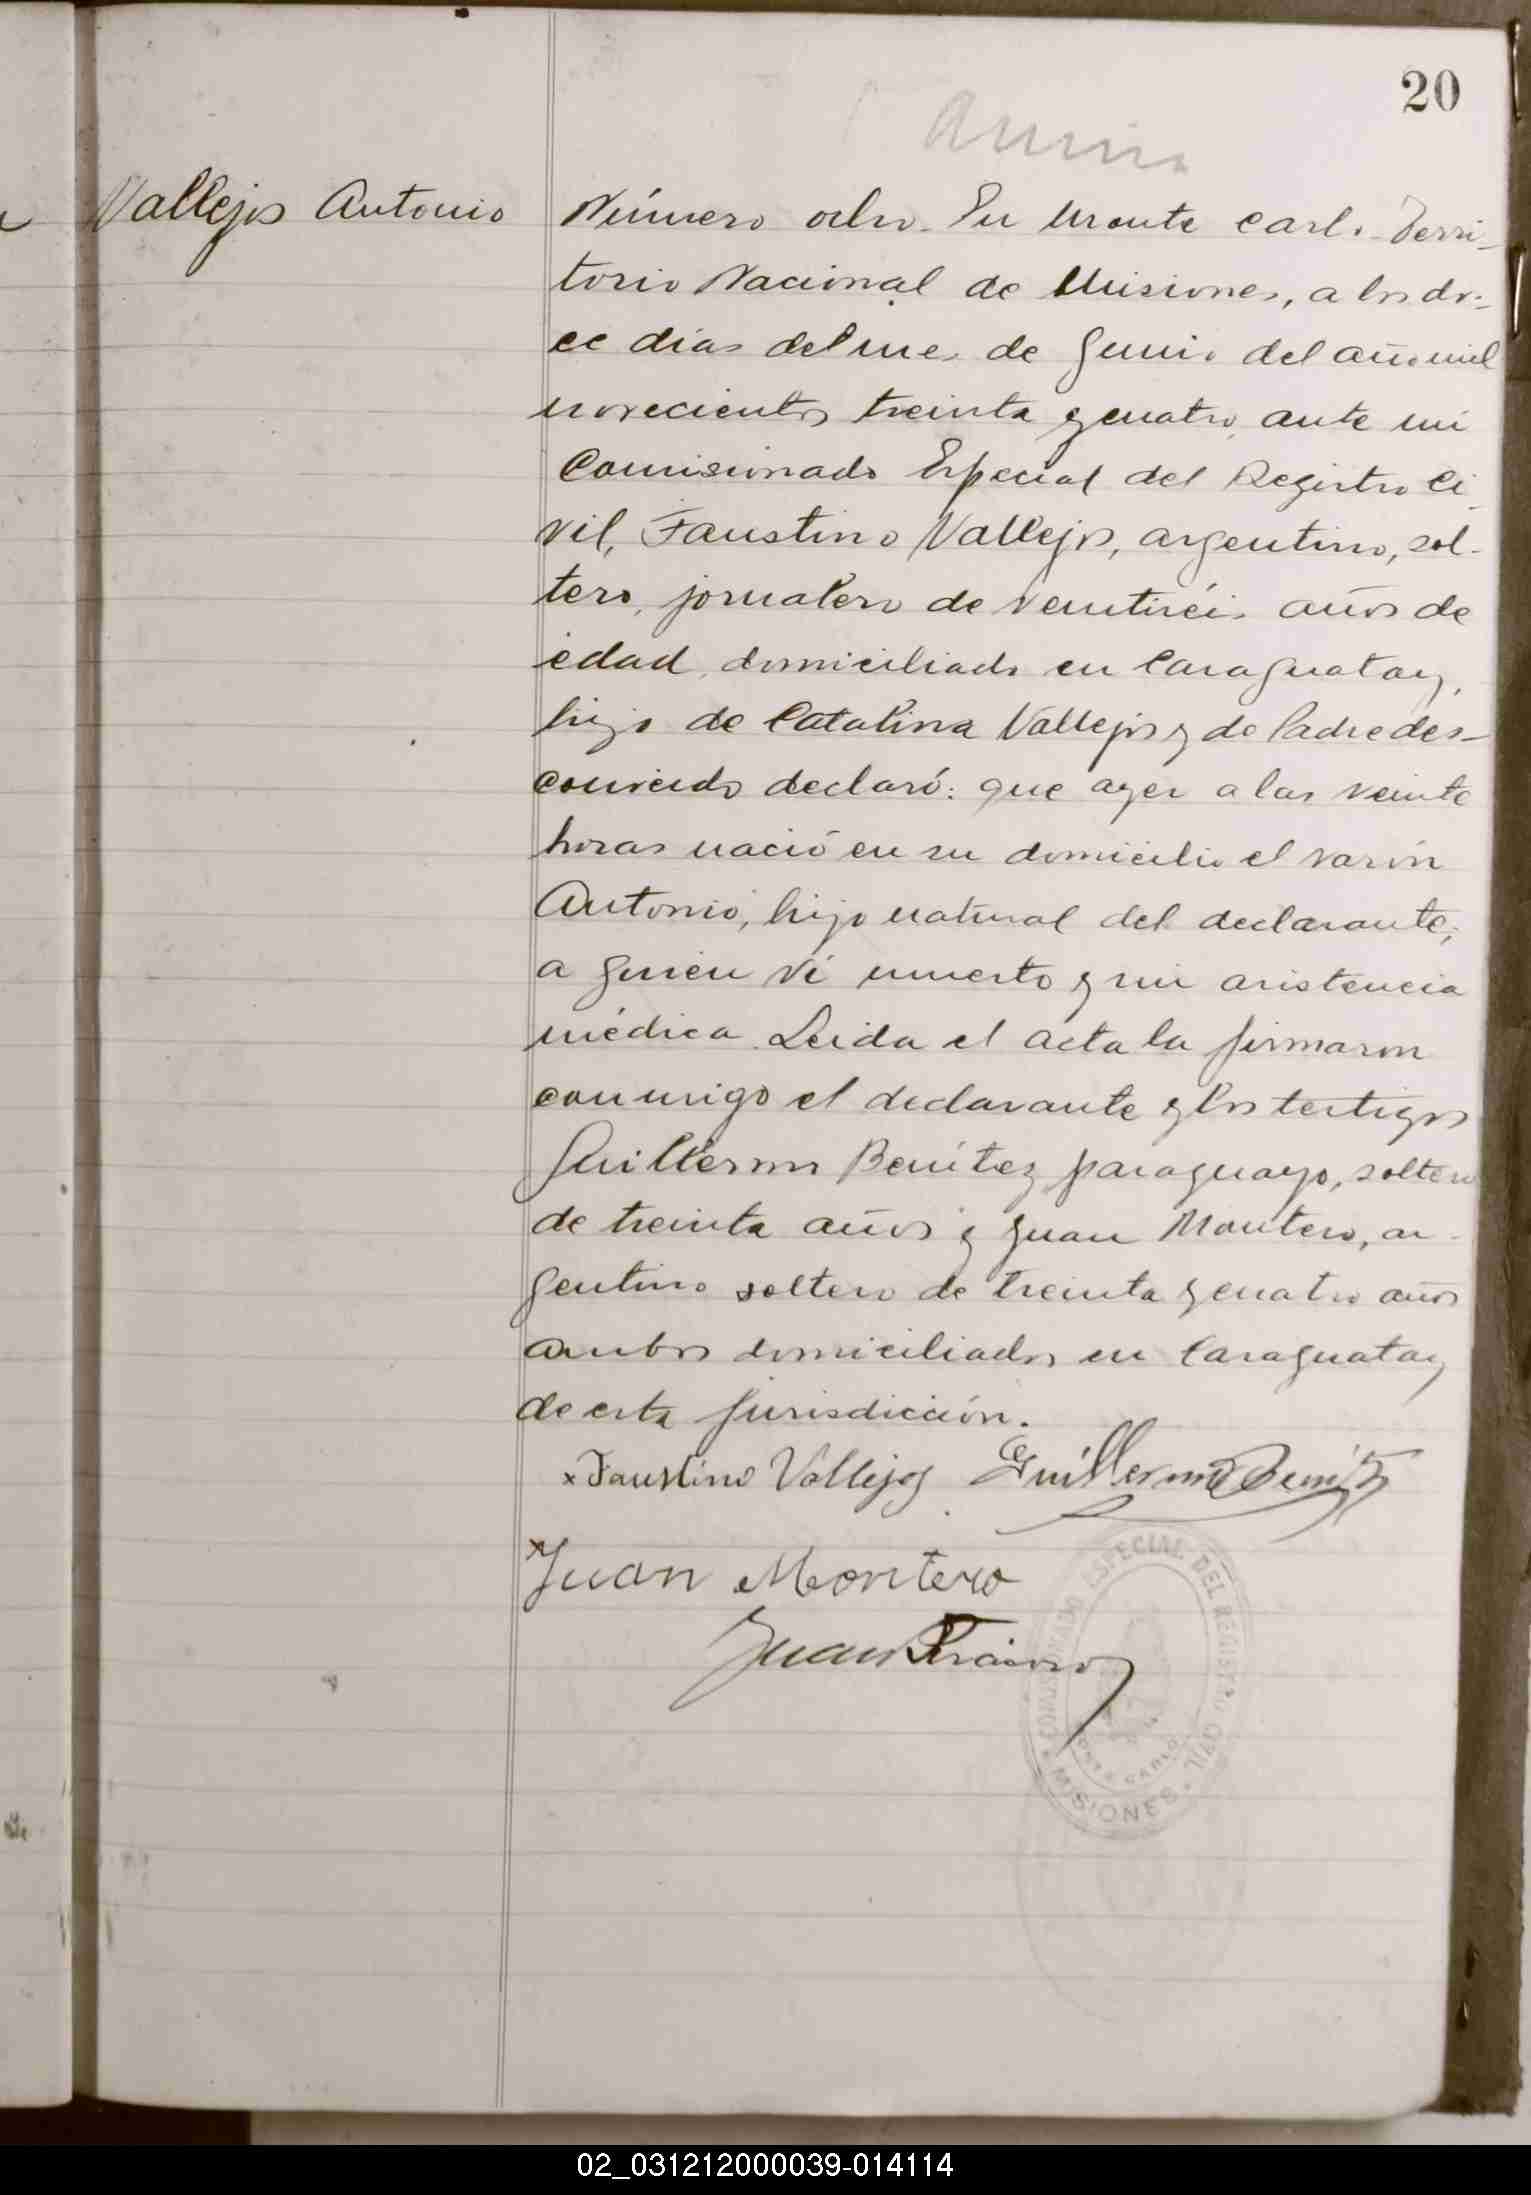 20
Vallejos Antonio
Número ocho. En Monte Carlo. Terri-
torio Nacional de Misiones, a los do-
ce días del mes de Junio del año mil
novecientos treinta y cuatro, ante mi
Comisionado Especial del Registro Ci-
vil, Faustino Vallejos, argentino, sol-
tero, jornalero de veintiséis años de
edad, domiciliado en Caraguatay,
hijo de Catalina Vallejos y de Padre des-
conocido declaró: que ayer a las veinte
horas nació en su domicilio el varón
Antonio, hijo natural del declarante;
a quien ví muerto y sin asistencia
médica. Leida el acta la firmaron
conmigo el declarante y los testigos
Guillermo Benítez paraguayo, soltero
de treinta años y Juan Montero, ar-
gentino soltero de treinta y cuatro años
ambos domiciliados en Caraguatay
de esta jurisdicción.
x Faustino Vallejos Guillermo Benítez
x Juan Montero
Juan
COMISIONADO ESPECIAL DEL REGISTRO CIVIL
MONTE CARLO
MISIONES
02_031212000039-014114